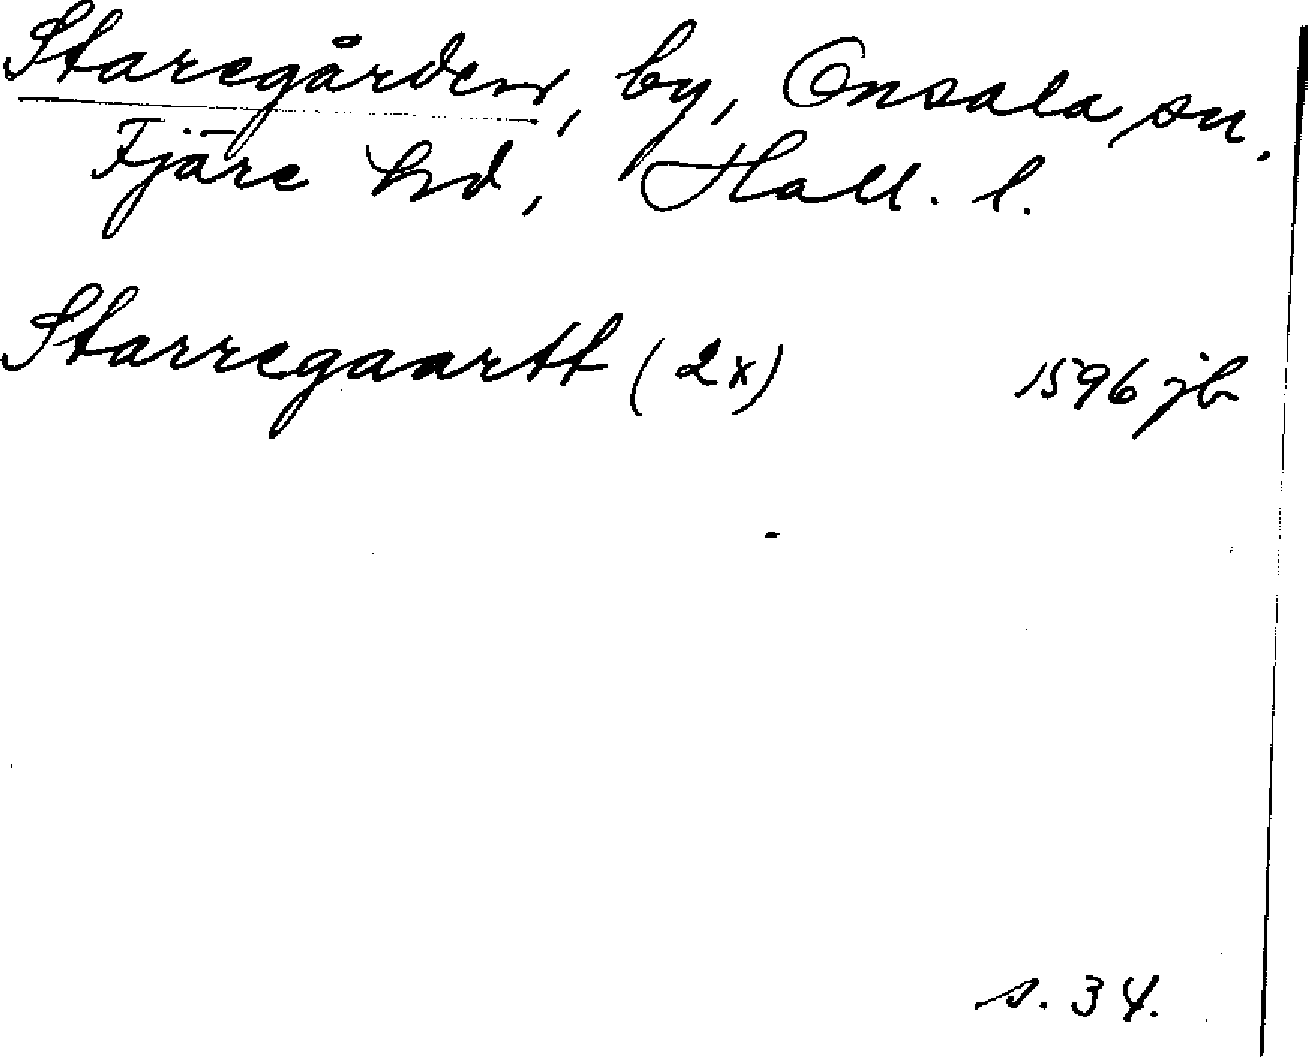 Staregården, by, Onsala sn.
Fjäre hd, Hall. l.
Starregaartt (2x) 1596 jb
s. 34.